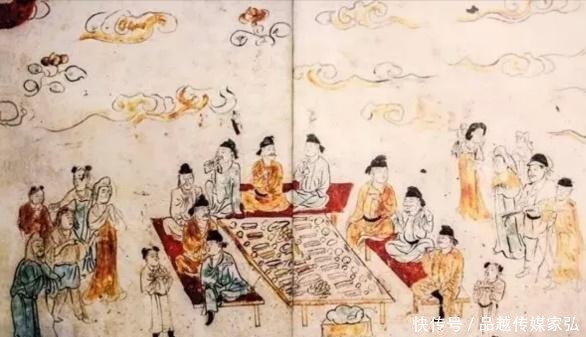 快传号 / 品越传媒家弘